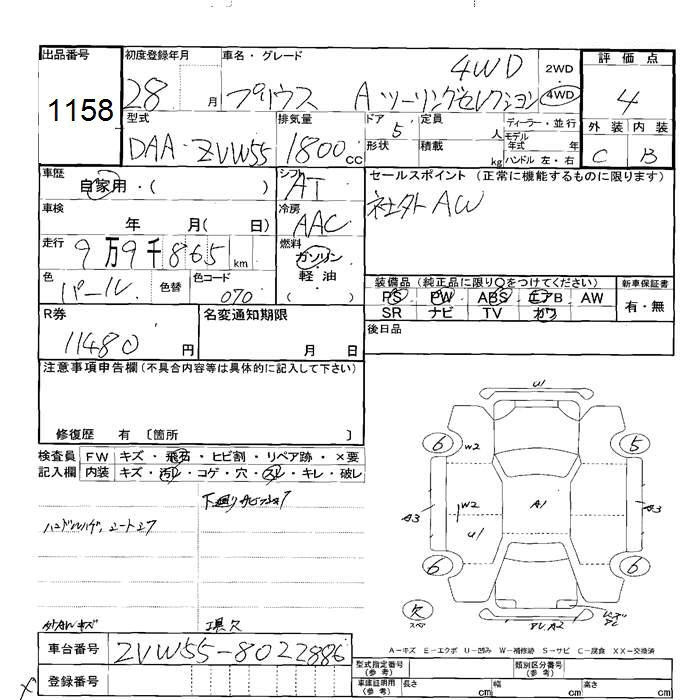 出品番号 1158
初度登録年月 28 月
車名・グレード プリウス Aツーリングセレクション 4WD
2WD 4WD
評価点 4
外装 内装
C B
型式 DAA-ZVW55
排気量 1800cc
ドア 5
形状
定員 人
積載 kg
ディーラー・並行
モデル年式 年
ハンドル 左・右
車歴 自家用・( )
シフト AT
車検 年 月( 日)
冷房 AAC
走行 9万9千865km
燃料 ガソリン・軽油 ( )
色 パール 色替
色コード 070
セールスポイント (正常に機能するものに限ります)
社外AW
装備品 (純正品に限り○をつけてください)
PS PW ABS エアB AW
SR ナビ TV カワ
新車保証書 有・無
後日品
R券 11480円
名変通知期限 月 日
注意事項申告欄(不具合内容等は具体的に記入して下さい)
修復歴 有 〔箇所 〕
検査員記入欄
FW キズ・飛石・ヒビ割・リペア跡・×要
内装 キズ・汚レ・コゲ・穴・スレ・キレ・破レ
外AWキズ
工具欠
車台番号 ZVW55-8022886
登録番号
U1
6 W2 5
A3 W2 A1 A3
U1
6 6
欠 スペア
A2
A-キズ E-エクボ U-凹み W-補修跡 S-サビ C-腐食 XX-交換済
型式指定番号(参考) 類別区分番号(参考)
車庫証明用(参考) 長さ cm 幅 cm 高さ cm